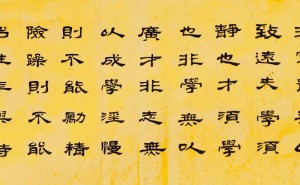 致遠夫學須
靜也才須學
也非學無以
廣才非志無
以成學淫慢
則不能勵精
險躁則不能